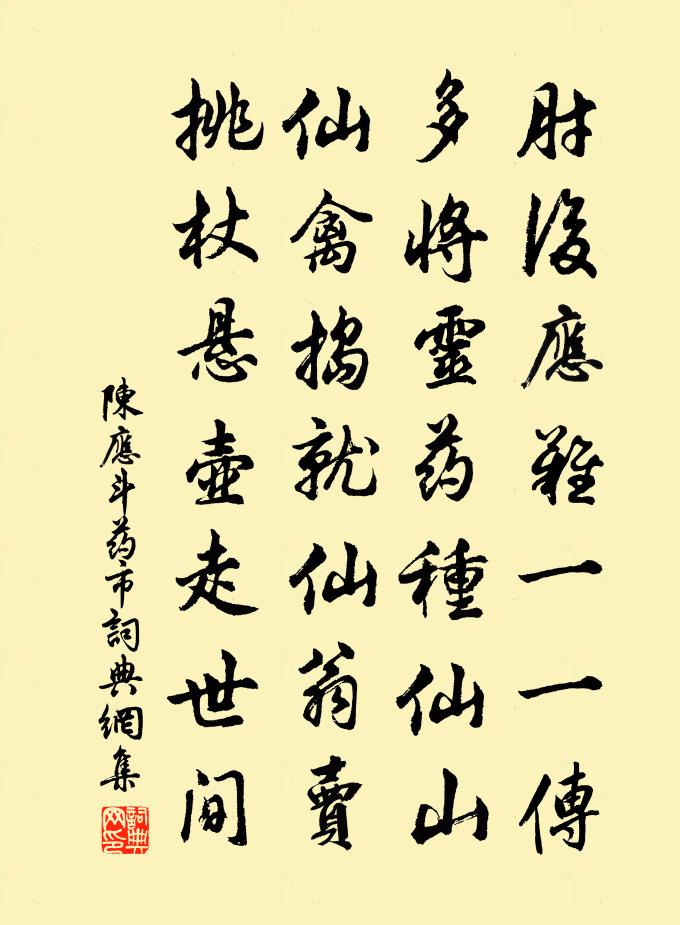 肘後應難一一傳
多將靈药種仙山
仙禽搗就仙翁賣
挑杖悬壺走世间
陳應斗药市詞典網集
詞典网印